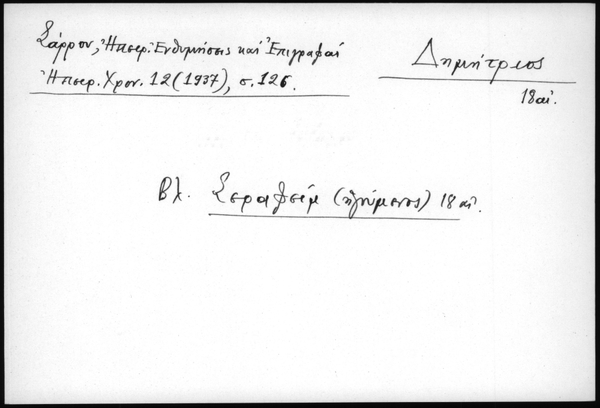 Σάρρου, Ἠπειρ. Ἐνθυμήσεις καὶ Ἐπιγραφαί
Ἠπειρ. Χρον. 12 (1937), σ. 126.
Δημήτριος
18 αἰ.
Βλ. Σεραφείμ (ἡγούμενος) 18 αἰ.